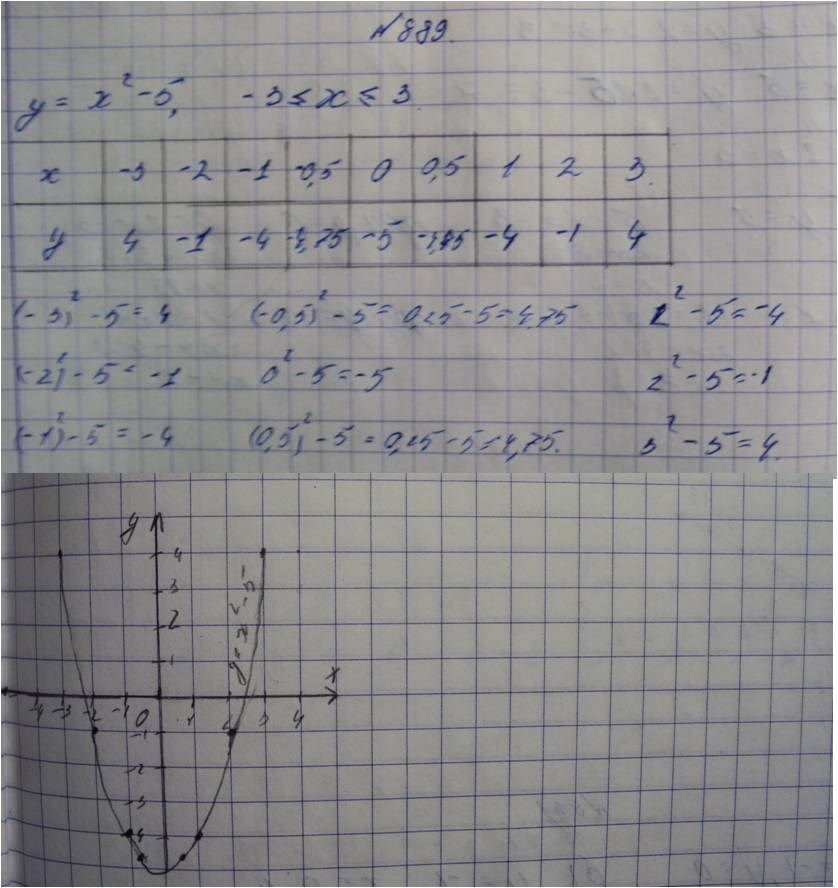 №889.
y = x² - 5, -3 ≤ x ≤ 3.
x -3 -2 -1 -0,5 0 0,5 1 2 3.
y 4 -1 -4 -4,75 -5 -4,75 -4 -1 4
(-3)² - 5 = 4 (-0,5)² - 5 = 0,25 - 5 = 4,75 1² - 5 = -4
(-2)² - 5 = -1 0² - 5 = -5 2² - 5 = -1
(-1)² - 5 = -4 (0,5)² - 5 = 0,25 - 5 = 4,75. 3² - 5 = 4.
y
4
3
2
1
y = x² - 5
x
-4 -3 -2 -1 0 1 2 3 4
-1
-2
-3
-4